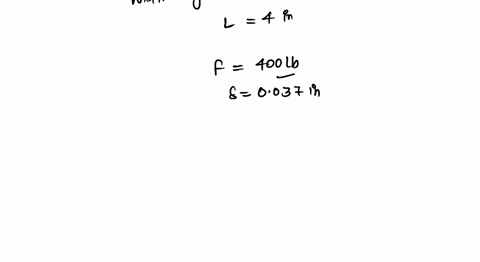 L = 4 in
F = 400 lb
δ = 0.037 in